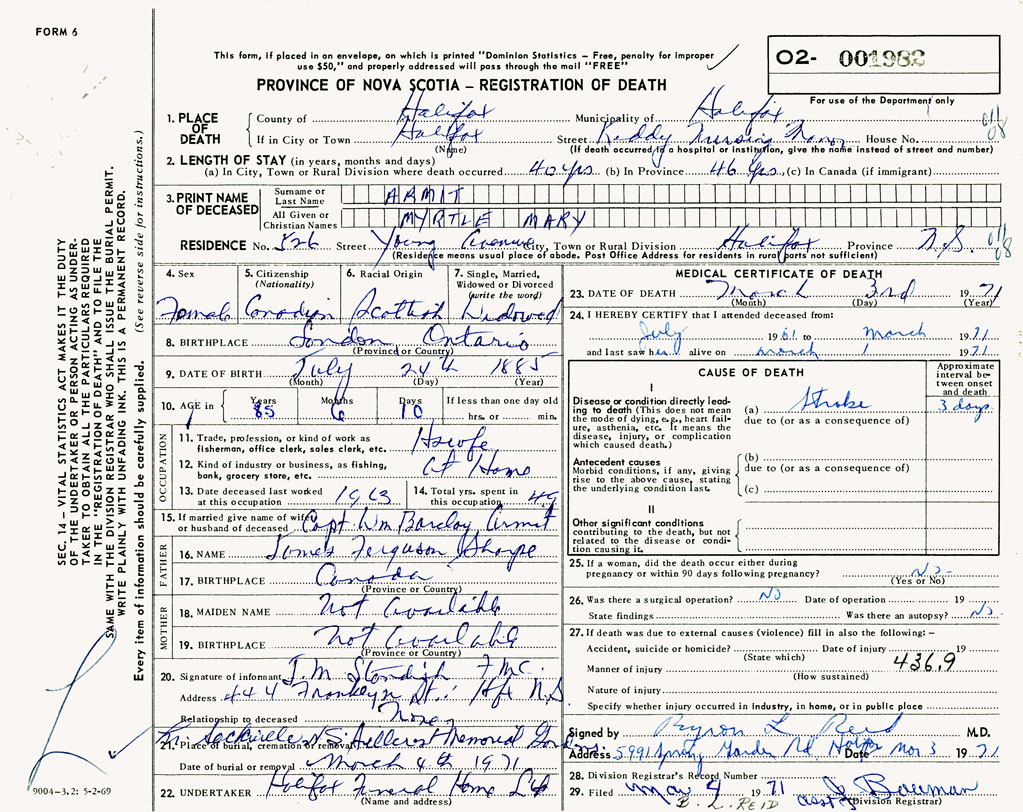 FORM 6
This form, if placed in an envelope, on which is printed "Dominion Statistics – Free, penalty for improper
use $50," and properly addressed will pass through the mail "FREE"
02- 001982
For use of the Department only
PROVINCE OF NOVA SCOTIA – REGISTRATION OF DEATH
1. PLACE OF DEATH
County of Halifax Municipality of Halifax
If in City or Town Halifax Street Keddy Nursing House No.
(Name) (If death occurred in a hospital or institution, give the name instead of street and number)
2. LENGTH OF STAY (in years, months and days)
(a) In City, Town or Rural Division where death occurred 40 yrs (b) In Province 46 yrs, (c) In Canada (if immigrant)
3. PRINT NAME OF DECEASED
Surname or Last Name ARMIT
All Given or Christian Names MYRTLE MARY
RESIDENCE No. 826 Street Young Avenue City, Town or Rural Division Halifax Province N.S.
(Residence means usual place of abode. Post Office Address for residents in rural parts not sufficient)
4. Sex Female
5. Citizenship (Nationality) Canadian
6. Racial Origin Scottish
7. Single, Married, Widowed or Divorced (write the word) Widowed
8. BIRTHPLACE London Ontario
(Province or Country)
9. DATE OF BIRTH July 24th 1885
(Month) (Day) (Year)
10. AGE in Years 85 Months 6 Days 10 If less than one day old hrs. or min.
OCCUPATION
11. Trade, profession, or kind of work as fisherman, office clerk, sales clerk, etc. Hswfe
12. Kind of industry or business, as fishing, bank, grocery store, etc. At Home
13. Date deceased last worked at this occupation 1963
14. Total yrs. spent in this occupation 49
15. If married give name of wife or husband of deceased Capt Wm Barclay Armit
FATHER
16. NAME James Ferguson Sharpe
17. BIRTHPLACE Canada
(Province or Country)
MOTHER
18. MAIDEN NAME Not Available
19. BIRTHPLACE Not Available
(Province or Country)
20. Signature of informant J.M. Standish
Address 444 St. Hfx N.S.
Relationship to deceased None
21. Place of burial, cremation or removal Sackville N.S. Hillcrest Memorial Gardens
Date of burial or removal March 4th 1971
22. UNDERTAKER Halifax Funeral Home Ltd
(Name and address)
MEDICAL CERTIFICATE OF DEATH
23. DATE OF DEATH March 3rd 1971
(Month) (Day) (Year)
24. I HEREBY CERTIFY that I attended deceased from:
July 1961 to March 1971
and last saw h er alive on March 1 1971
CAUSE OF DEATH
Approximate interval between onset and death
I
Disease or condition directly leading to death (This does not mean the mode of dying, e.g., heart failure, asthenia, etc. It means the disease, injury, or complication which caused death.)
(a) Stroke 3 days
due to (or as a consequence of)
Antecedent causes
Morbid conditions, if any, giving rise to the above cause, stating the underlying condition last.
(b)
due to (or as a consequence of)
(c)
II
Other significant conditions contributing to the death, but not related to the disease or condition causing it.
25. If a woman, did the death occur either during pregnancy or within 90 days following pregnancy? No
(Yes or No)
26. Was there a surgical operation? No Date of operation 19
State findings Was there an autopsy? No
27. If death was due to external causes (violence) fill in also the following: –
Accident, suicide or homicide? Date of injury 19
(State which)
Manner of injury 436.9
(How sustained)
Nature of injury
Specify whether injury occurred in industry, in home, or in public place
Signed by Byron L Reid M.D.
Address 5991 Spring Garden Rd Halifax Date Mar. 3 1971
28. Division Registrar's Record Number
29. Filed Mar 4 1971 J Bauman
Division Registrar
B. L. REID asst
SEC. 14 – VITAL STATISTICS ACT MAKES IT THE DUTY
OF THE UNDERTAKER OR PERSON ACTING AS UNDER-
TAKER TO OBTAIN ALL THE PARTICULARS REQUIRED
IN THE "REGISTRATION OF DEATH" AND TO FILE THE
SAME WITH THE DIVISION REGISTRAR WHO SHALL ISSUE THE BURIAL PERMIT.
WRITE PLAINLY WITH UNFADING INK. THIS IS A PERMANENT RECORD.
Every item of information should be carefully supplied. (See reverse side for instructions.)
9004-3.2: 5-2-69